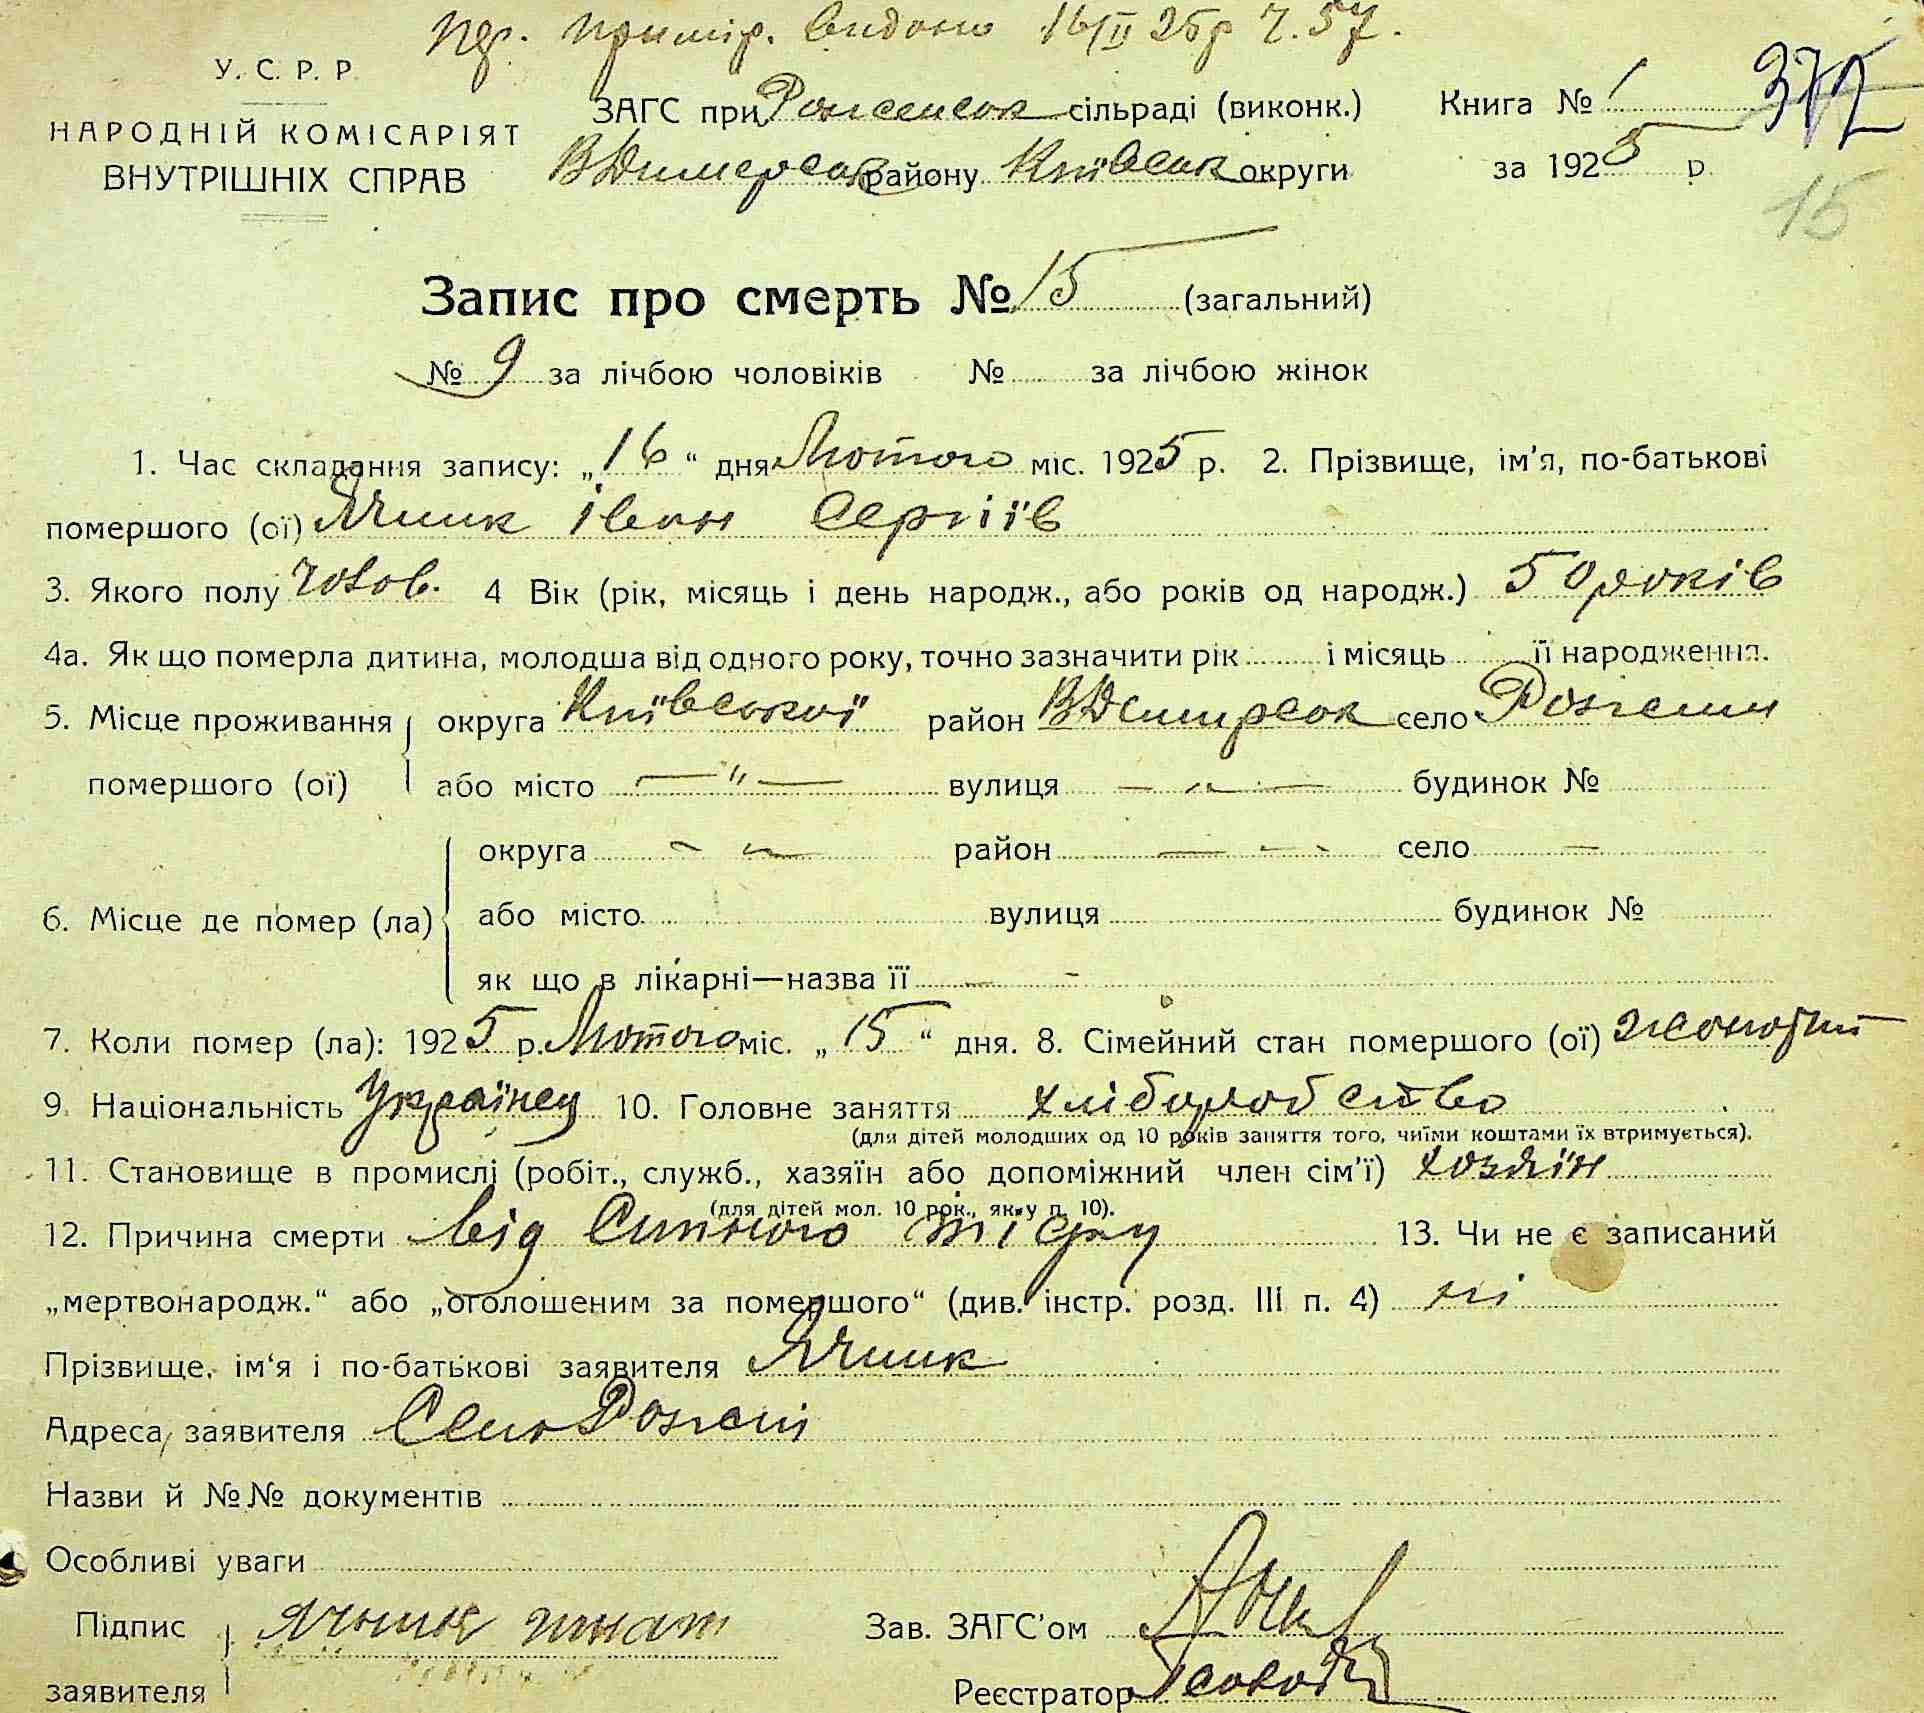 пер. примір. видано 16/II 25р Ч. 57.
У. С. Р. Р.
НАРОДНІЙ КОМІСАРІЯТ
ВНУТРІШНІХ СПРАВ
ЗАГС при Роженськ сільраді (виконк.)
ВДимерськ району Київськ округи
Книга № 1
за 1925 р.
372
15
Запис про смерть № 15 (загальний)
№ 9 за лічбою чоловіків № за лічбою жінок
1. Час складання запису: „16“ дня Лютого міс. 1925 р. 2. Прізвище, ім'я, по-батькові
помершого (ої) Ячник Іван Сергіїв
3. Якого полу чолов. 4 Вік (рік, місяць і день народж., або років од народж.) 50 років
4а. Як що померла дитина, молодша від одного року, точно зазначити рік і місяць її народження.
5. Місце проживання округа Київської район ВДимерськ село Рожени
помершого (ої) або місто —"— вулиця —"— будинок №
округа — район — село —
6. Місце де помер (ла) або місто вулиця будинок №
як що в лікарні—назва її — -
7. Коли помер (ла): 1925 р. Лютого міс. „15“ дня. 8. Сімейний стан помершого (ої) жонатий
9. Національність Українец 10. Головне заняття хліборобство
(для дітей молодших од 10 років заняття того, чиїми коштами їх втримується).
11. Становище в промислі (робіт., служб., хазяїн або допоміжний член сім'ї) хозяїн
(для дітей мол. 10 рок., як у п. 10).
12. Причина смерти від Сипного тіфу 13. Чи не є записаний
„мертвонародж.“ або „оголошеним за помершого“ (див. інстр. розд. III п. 4) ні
Прізвище, ім'я і по-батькові заявителя Ячник
Адреса заявителя Село Рожени
Назви й №№ документів
Особливі уваги
Підпис Ячник Гнат Зав. ЗАГС'ом
заявителя Реєстратор